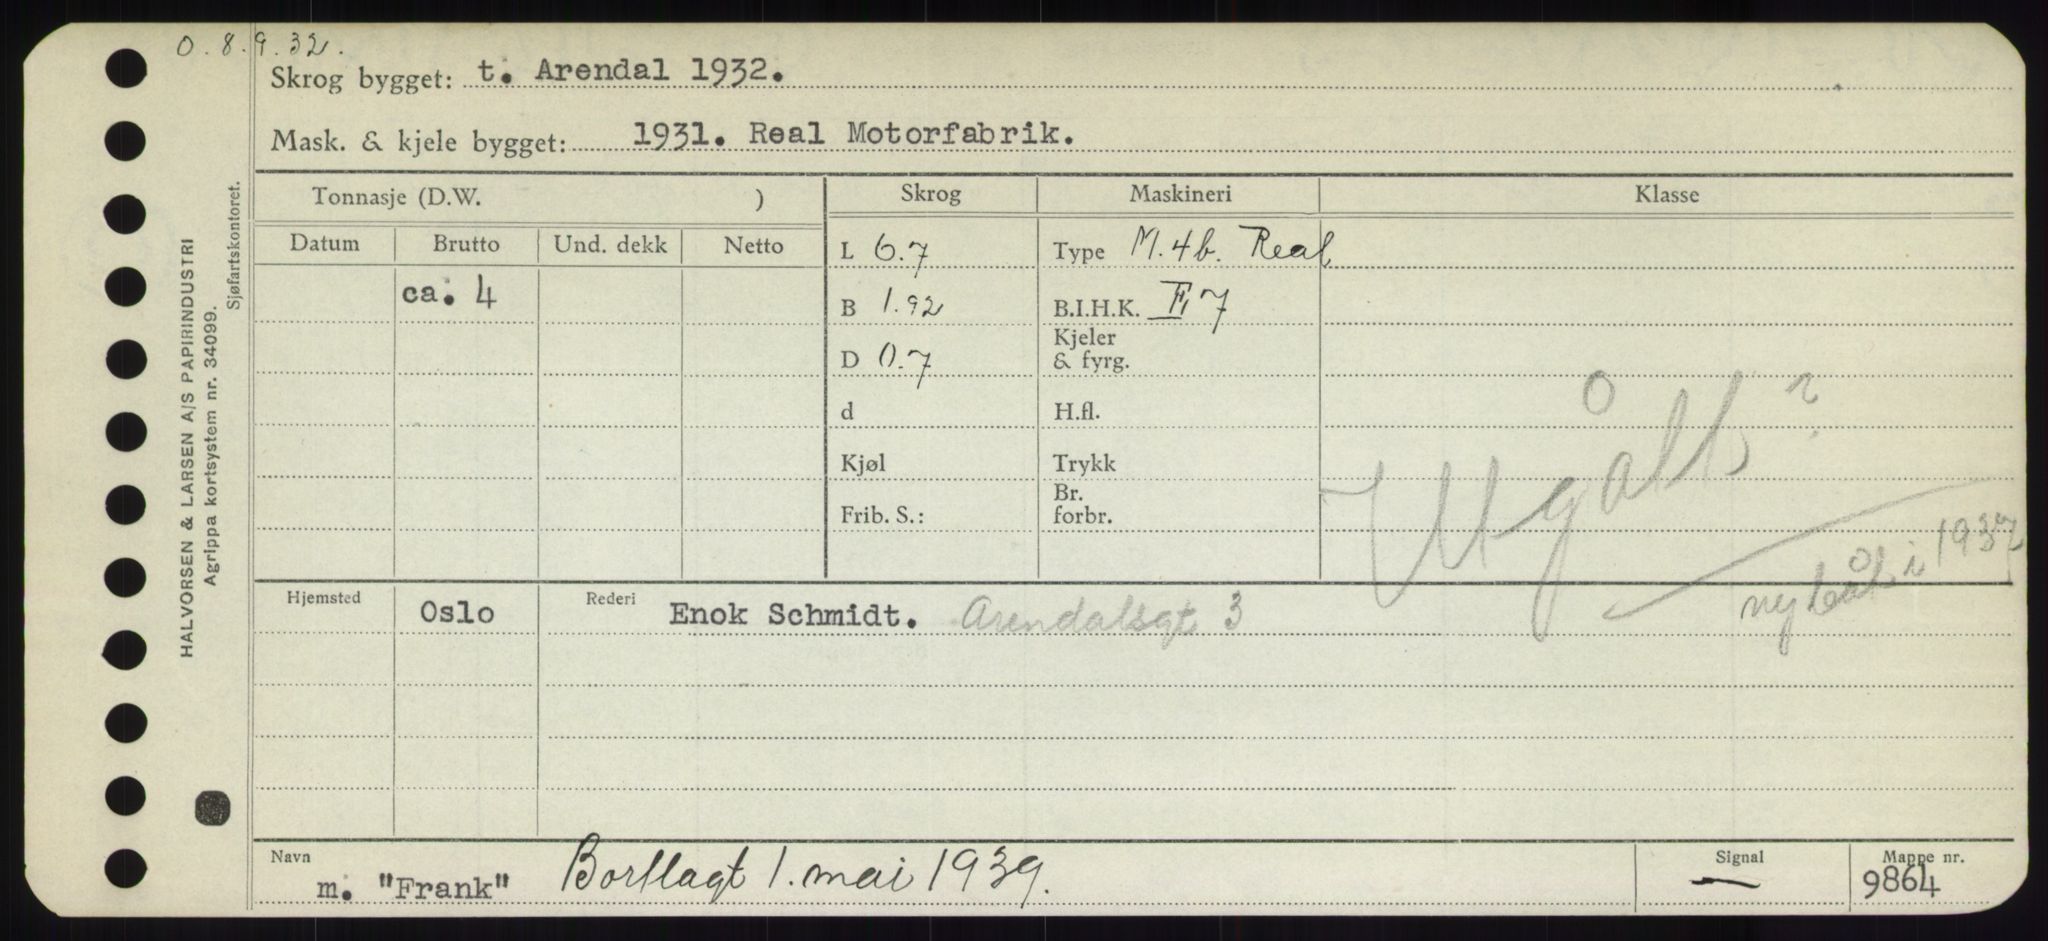 O. 8. 9. 32.
Skrog bygget: t. Arendal 1932.
Mask. & kjele bygget: 1931. Real Motorfabrik.
Tonnasje (D.W. ) Skrog Maskineri Klasse
Datum Brutto Und. dekk Netto
L 6.7 Type M. 4b. Real
ca. 4
B 1.92 B.I.H.K. 7
Kjeler
D 0.7 & fyrg.
d H.fl.
Kjøl Trykk
Br.
Frib. S.: forbr.
Utgått?
ny båt i 1937
Hjemsted Oslo Rederi Enok Schmidt. Arendalsgt 3
Navn Signal Mappe nr.
m. "Frank" Bortlagt 1. mai 1939. — 9864
HALVORSEN & LARSEN A/S PAPIRINDUSTRI
Agrippa kortsystem nr. 34099.
Sjøfartskontoret.